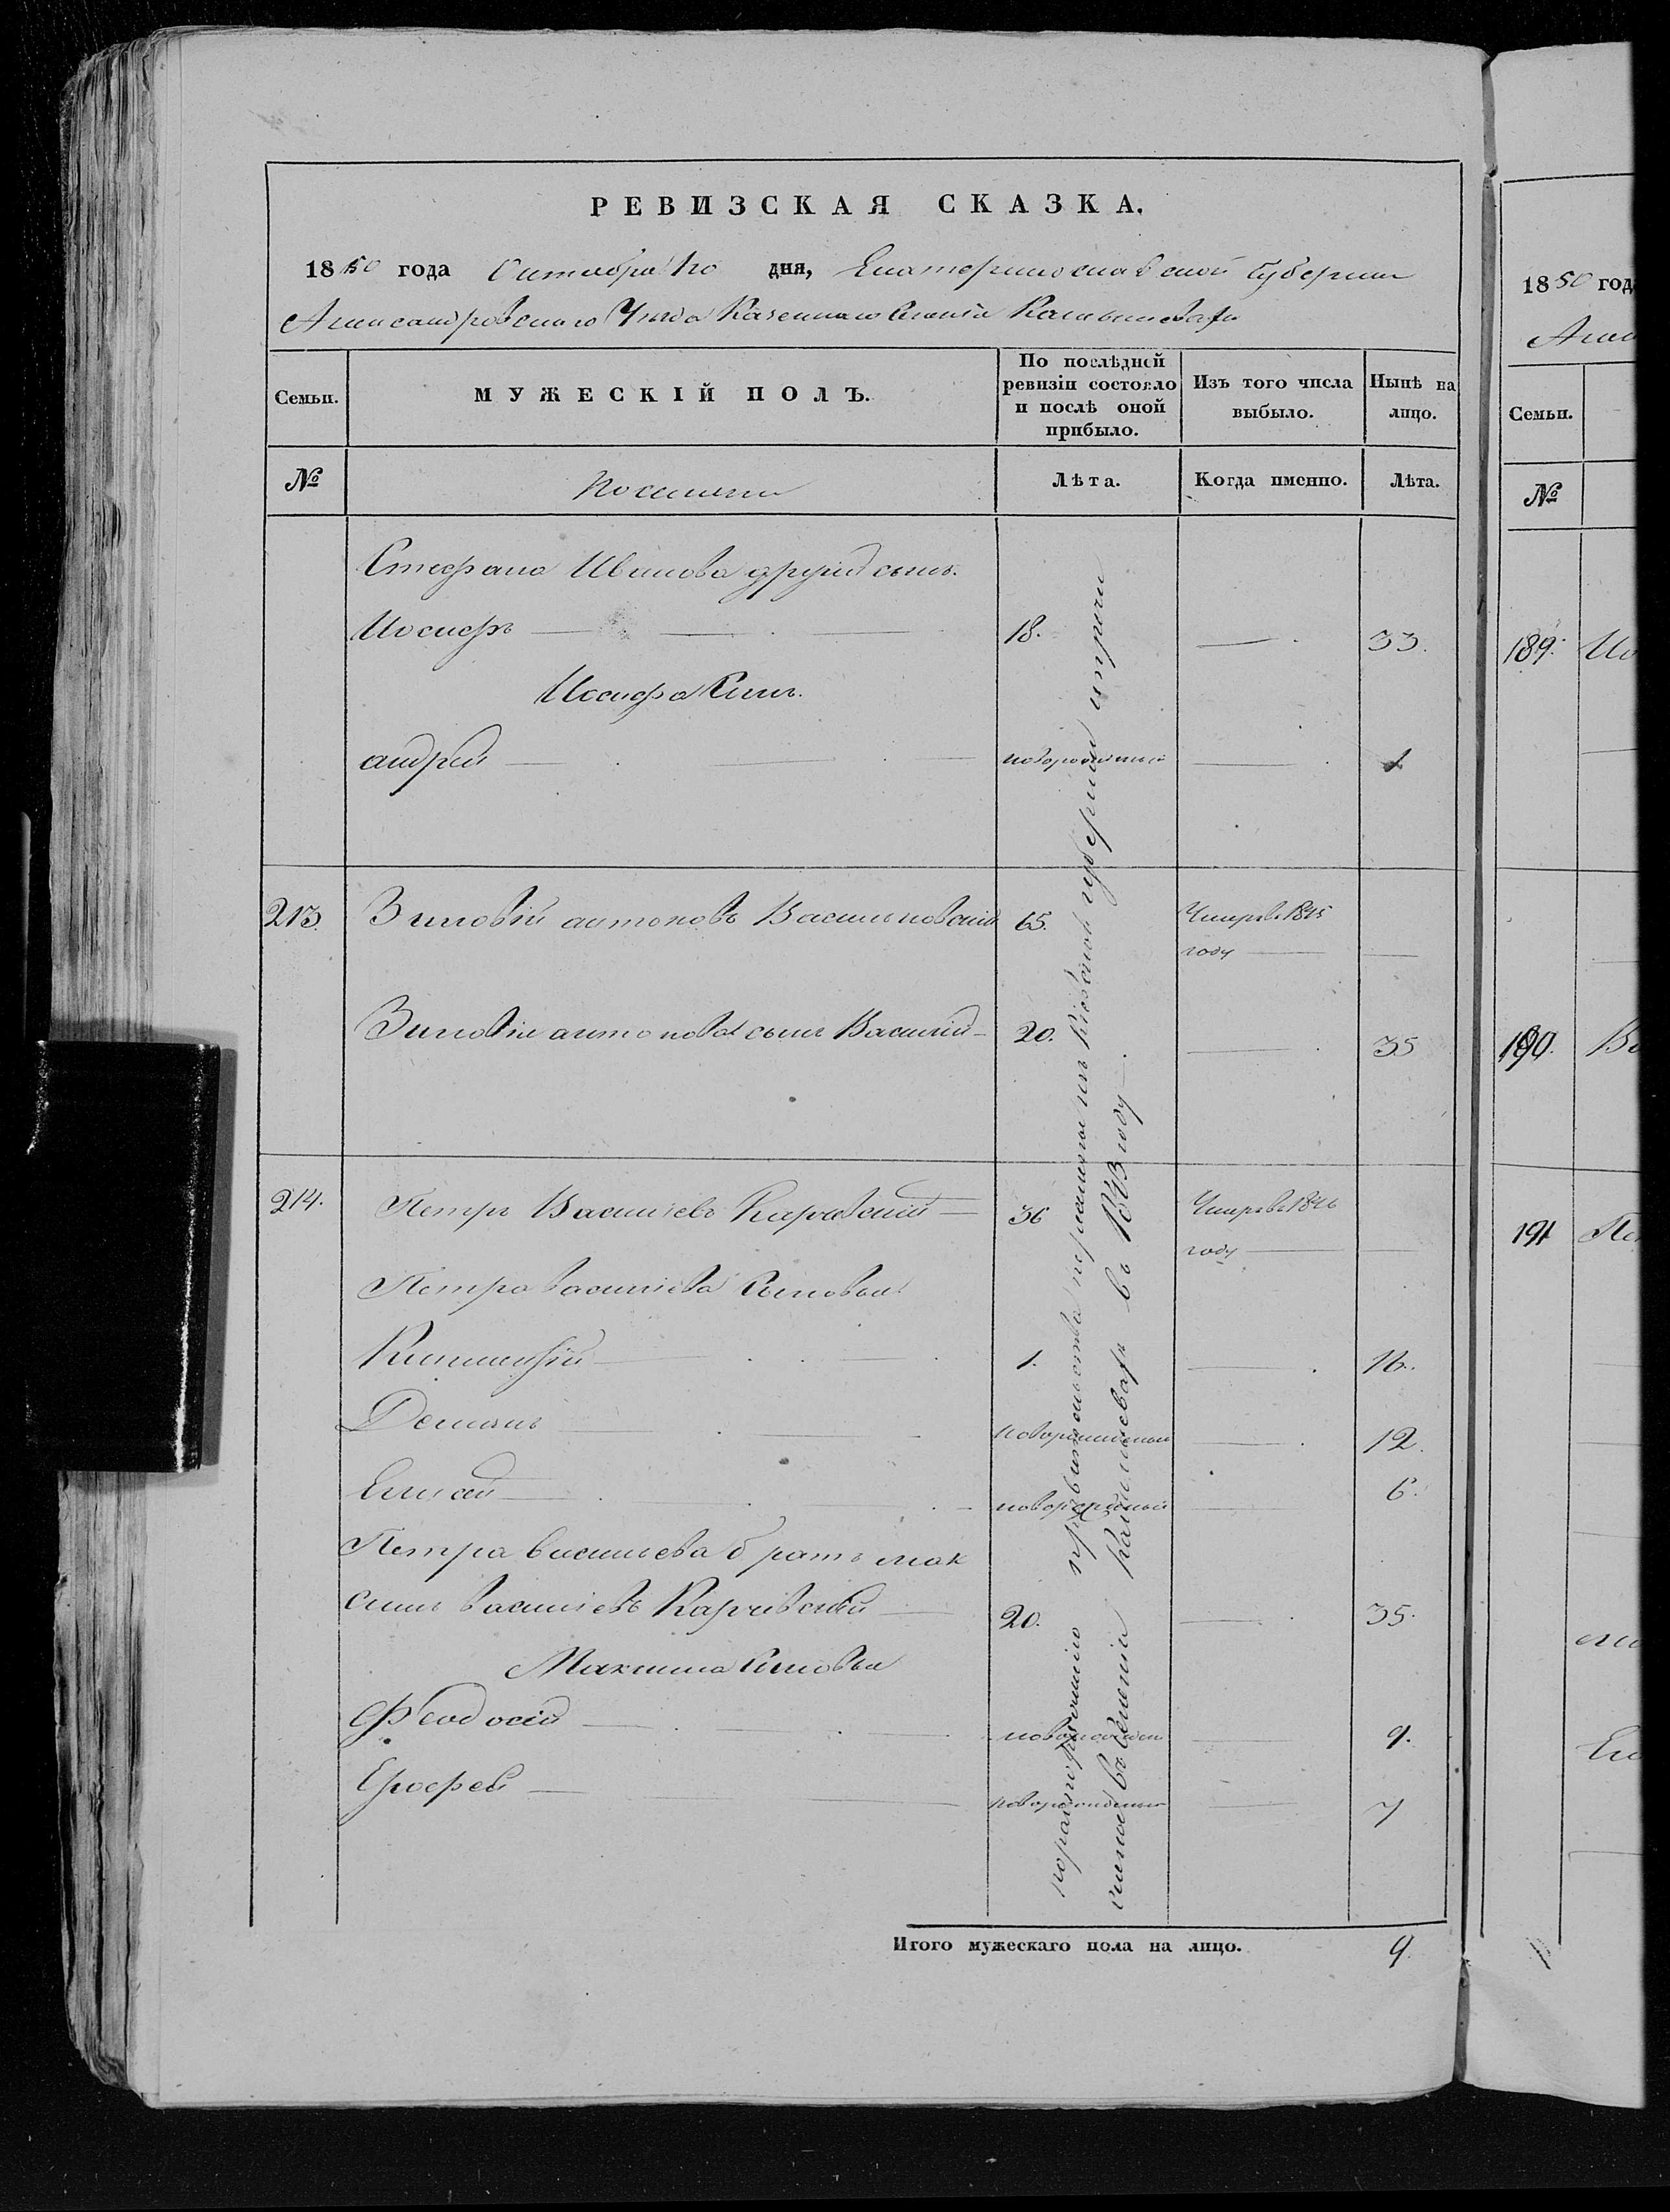 РЕВИЗСКАЯ СКАЗКА.
1850 года Октября 10 дня, Екатеринославской Губернии
Александровскаго Уезда Казеннаго Селенія
Семьи.
МУЖЕСКІЙ ПОЛЪ.
По послѣдней ревизіи состояло и послѣ оной прибыло.
Изъ того числа выбыло.
Нынѣ на лицо.
№
Поселяни
Лѣта.
Когда именно.
Лѣта.
Стефана Иванова другій сынъ.
Иосифъ 18. 33.
Иосифа Сынъ.
андрей новорожденный 1
213. Зиновій антоновъ Васильковскій 65. Умеръ в 1845 году
Зиновія антонова сынъ Василій 20. 35
214. Петръ Васильевъ Каравскій 36 Умеръ в 1846 году
Петра васильева Сыновья
1. 16.
Демянъ новорожденный 12.
Елисей новорожденный 6.
Петра васильева братъ мак
симъ васильевъ Каравскій 20. 35.
Максима Сыновья
Феодосій новорожден 9.
Ерофей новорожденный 7
по распоряженію правительства перечислены изъ Кіевской губерніи и
селеніи въ 1843 году
Итого мужескаго пола на лицо. 9.
1850 года
Семьи.
№
189.
190.
191